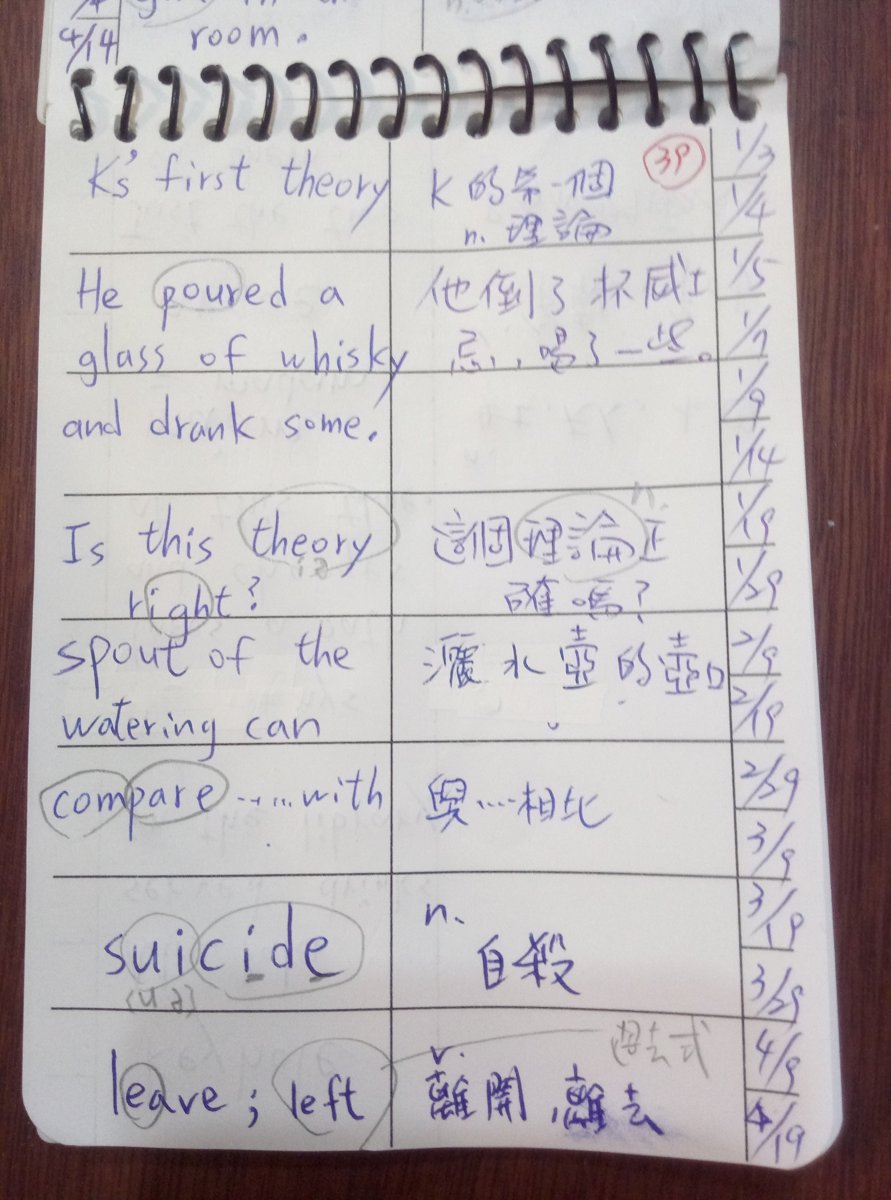 4/14
room.
K's first theory
K 的第一個
n. 理論
39
He poured a
glass of whisky
and drank some.
他倒了杯威士
忌,喝了一些。
Is this theory
right?
這個理論正
n.
確嗎?
spout of the
watering can
灑水壺的壺口
compare ...... with
與....相比
suicide
n.
自殺
leave ; left
v.
過去式
離開,離去
1/3
1/4
1/5
1/7
1/9
1/14
1/19
1/29
2/9
2/19
2/29
3/9
3/19
3/29
4/9
4/19